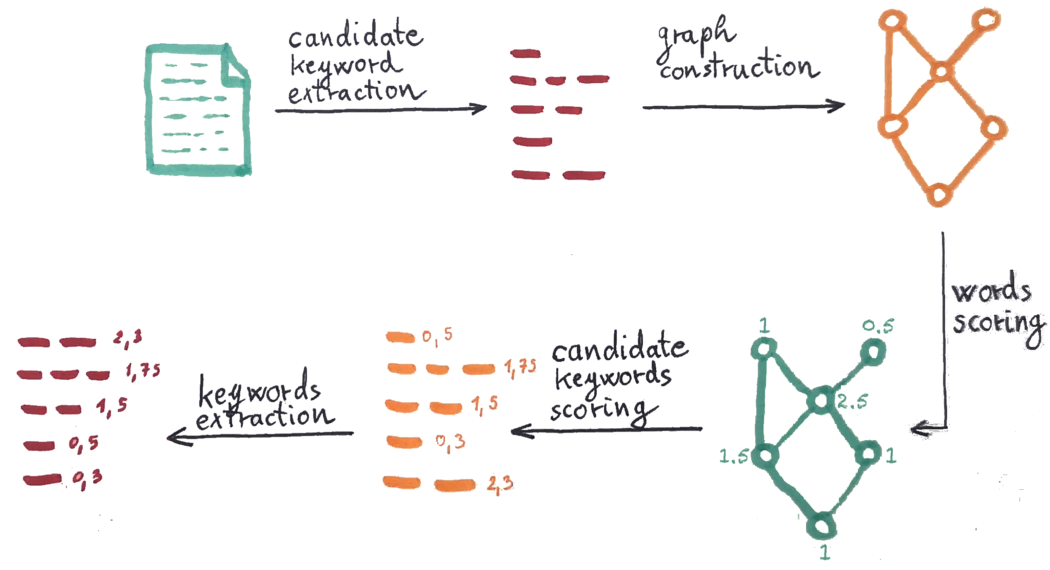 candidate
keyword
extraction
graph
construction
words
scoring
1
0.5
2.5
1.5
1
1
candidate
keywords
scoring
0,5
1,75
1,5
0,3
2,3
keywords
extraction
2,3
1,75
1,5
0,5
0,3